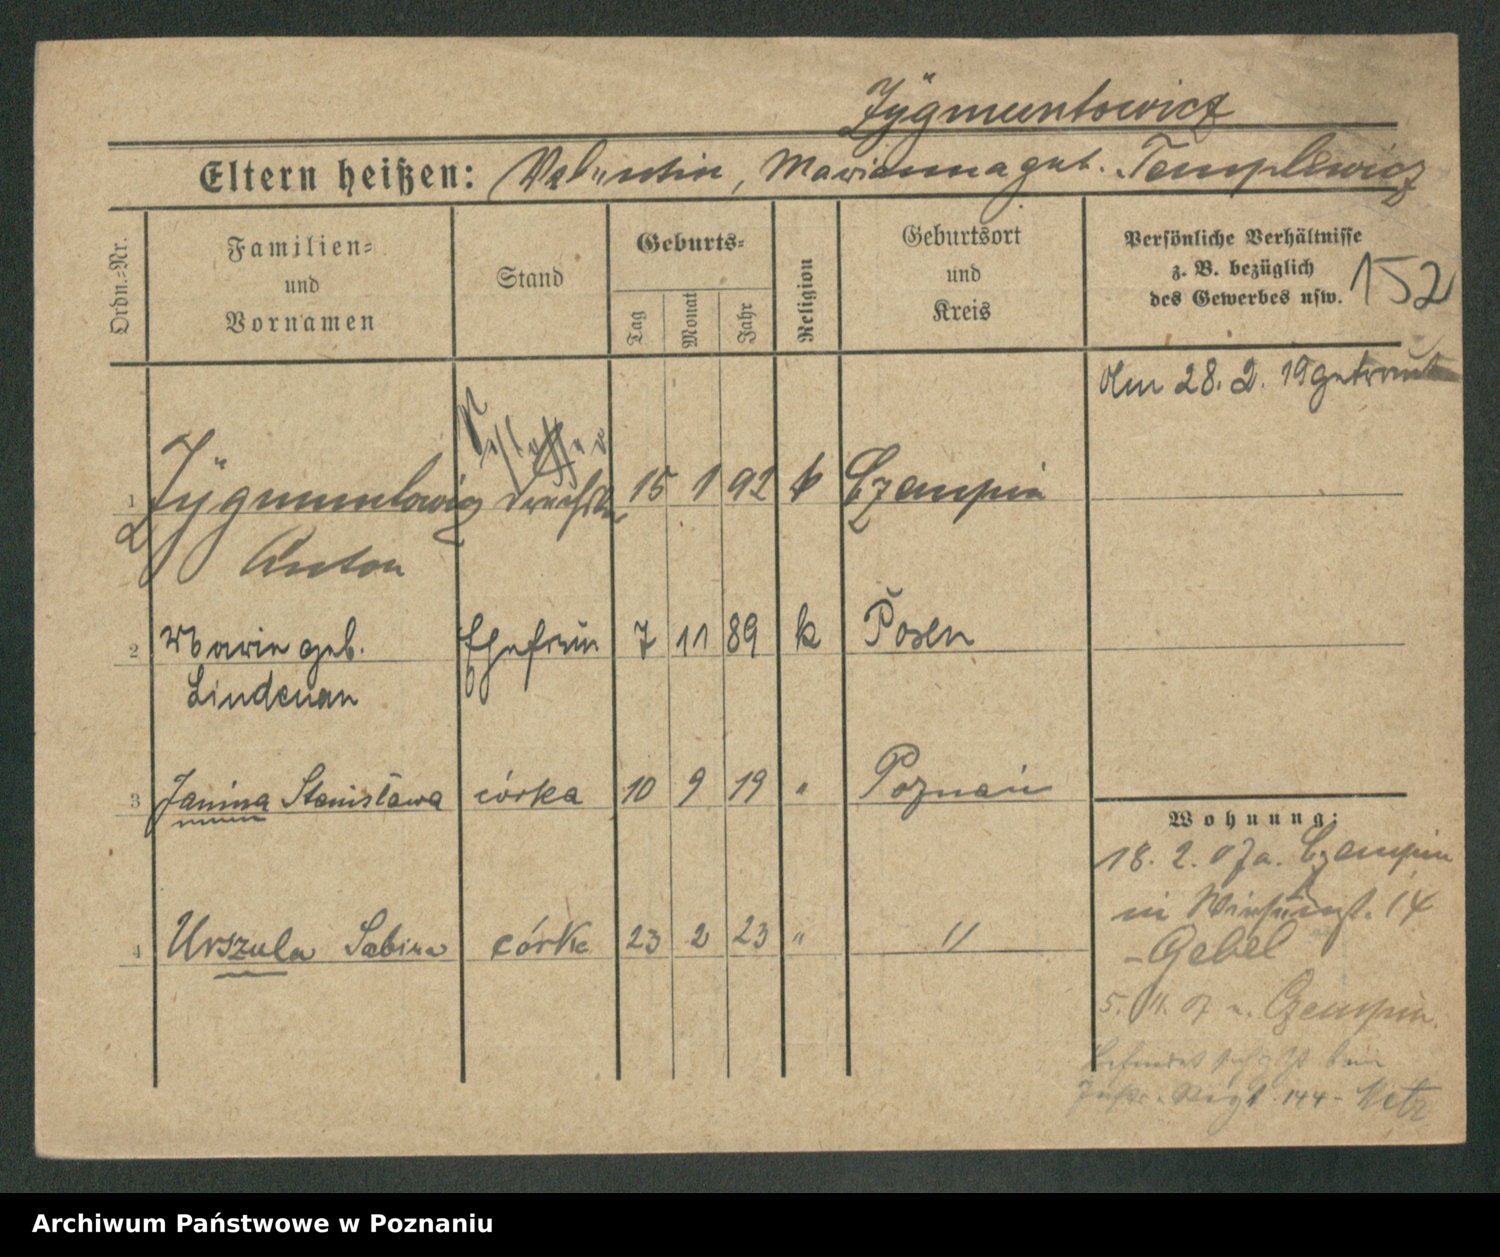 Zÿgmuntowicz
Eltern heißen: Valentin, Marianna geb. Templewicz
Ordn.=Nr.
Familien=
und
Vornamen
Stand
Geburts=
Tag
Monat
Jahr
Religion
Geburtsort
und
Kreis
Persönliche Verhältnisse
z. B. bezüglich
des Gewerbes usw.
152
Am 28. 2. 19 getraut
Schlosser
1 Zÿgmuntowicz 15 1 92 k Czempin
Anton
2 Marie geb. Ehefrau 7 11 89 k Posen
Lindenau
3 Janina Stanisława córka 10 9 19 " Poznań
Wohnung:
18. 2. 07 a. Czempin
in 14
4 Urszula Sabina córka 23 2 23 " "
- Gebel
5. 11. 07 n. Czempin.
befindet sich
Inftr. Regt. 144 - Metz
Archiwum Państwowe w Poznaniu